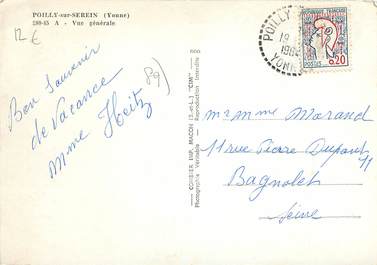 POILLY-sur-SEREIN (Yonne)
280-45 A - Vue générale
12 €
89)
Bon Souvenir
de Vacance
Mme Heitz
COMBIER IMP. MACON (S.-et-L.) "CIM"
Photographie Véritable - Reproduction Interdite
POILLY
YONNE
0,20
POSTES
mr mme Marand
11 rue Pierre Dupont
Bagnolet
Seine